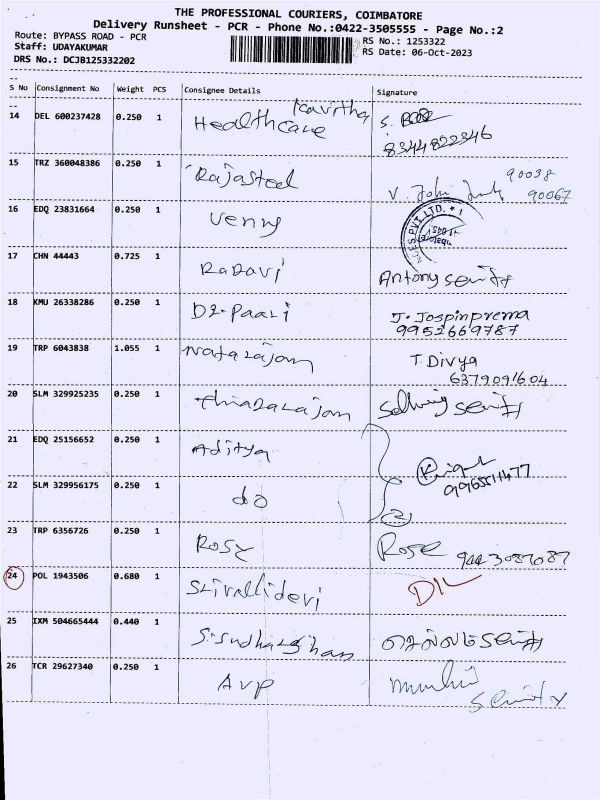 THE PROFESSIONAL COURIERS, COIMBATORE
Delivery Runsheet - PCR - Phone No.:0422-3505555 - Page No.:2
Route: BYPASS ROAD - PCR
RS No.: 1253322
Staff: UDAYAKUMAR
RS Date: 06-Oct-2023
DRS No.: DCJB125332202
S No Consignment No Weight PCS Consignee Details Signature
Kavitha
14 DEL 600237428 0.250 1 Healthcare S. Bose
8344822346
15 TRZ 360048386 0.250 1 Rajasteel V. John
90038
90067
16 EDQ 23831664 0.250 1 Venny
17 CHN 44443 0.725 1 Antony
18 KMU 26338286 0.250 1 Dr. Paari J. Jospinprema
9952669787
19 TRP 6043838 1.055 1 Natarajan T. Divya
6379091604
20 SLM 329925235 0.250 1
21 EDQ 25156652 0.250 1 Aditya
22 SLM 329956175 0.250 1 do
2
23 TRP 6356726 0.250 1 Rosy Rose
24 POL 1943506 0.680 1 Srivallidevi DIL
25 IXM 504665444 0.440 1
26 TCR 29627340 0.250 1 AVP